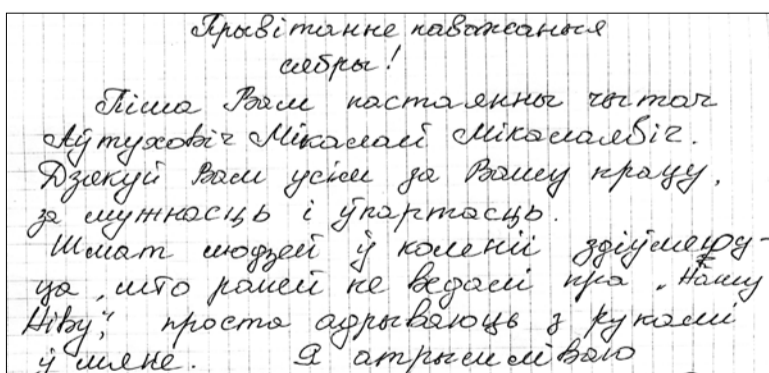 Прывітанне паважаныя
сябры!
Піша Вам пастаянны чытач
Аўтуховіч Мікалай Мікалаявіч.
Дзякуй Вам усім за Вашу працу,
за мужнасць і ўпартасць.
Шмат людзей ў калоніі здзіўляюц-
ца, што раней не ведалі пра „Нашу
Ніву", проста адрываюць з рукамі
ў мяне. Я атрымліваю